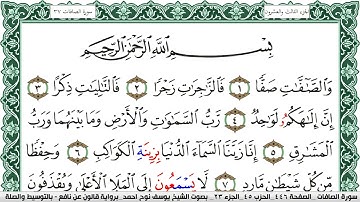 سورة الصافات ٣٧
الجزء الثالث والعشرون
بِسْمِ اللَّهِ الرَّحْمَٰنِ الرَّحِيمِ
وَالصَّٰفَّٰتِ صَفّٗا ١ فَالزَّٰجِرَٰتِ زَجْرٗا ٢ فَالتَّٰلِيَٰتِ ذِكْرًا ٣
إِنَّ إِلَٰهَكُمْ لَوَٰحِدٞ ٤ رَبُّ السَّمَٰوَٰتِ وَالْأَرْضِ وَمَا بَيْنَهُمَا وَرَبُّ
الْمَشَٰرِقِ ٥ إِنَّا زَيَّنَّا السَّمَآءَ الدُّنْيَا بِزِينَةِ الْكَوَاكِبِ ٦ وَحِفْظٗا
مِّن كُلِّ شَيْطَٰنٖ مَّارِدٖ ٧ لَا يَسْمَعُونَ إِلَى الْمَلَإِ الْأَعْلَىٰ وَيُقْذَفُونَ
سورة الصافات - الصفحة ٤٤٦ - الجزء ٤٥ - جزء ٢٣ - بصوت الشيخ يوسف نوح احمد - برواية قالون عن نافع - بالتوسيط والصلة